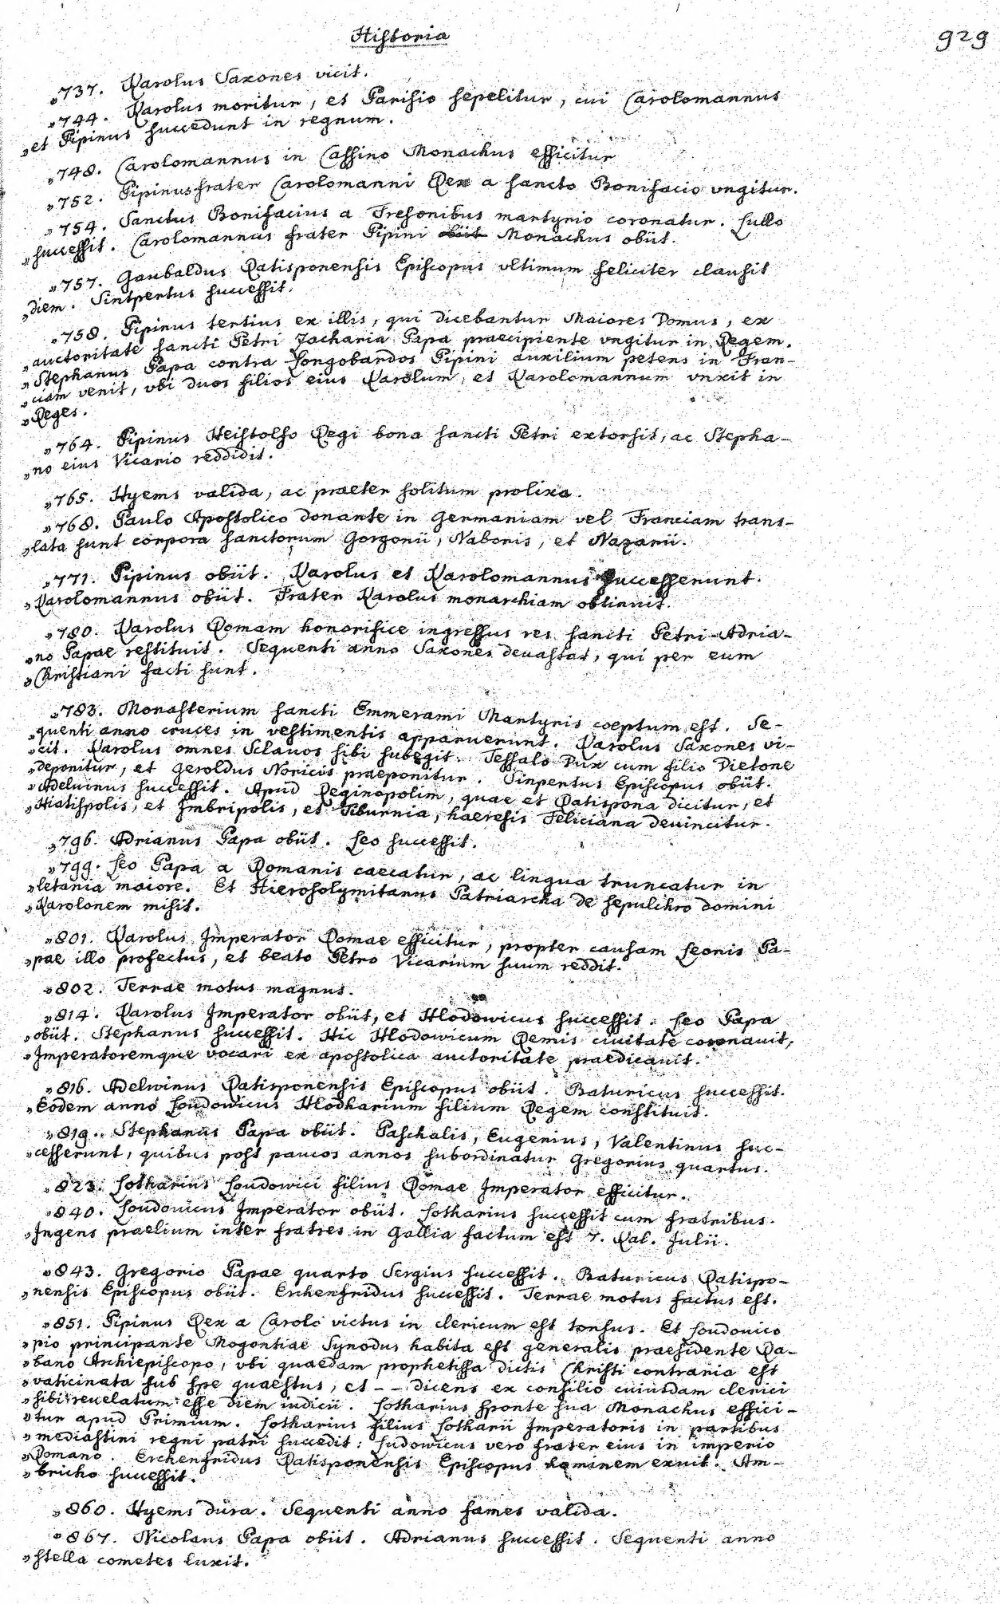 Historia
929
„737. Karolus Saxones vicit.
„744. Karolus moritur, et Parisio sepelitur, cui Carolomannus
„et Pipinus succedunt in regnum.
„748. Carolomannus in Cassino Monachus efficitur
„752. Pipinus frater Carolomanni Rex a sancto Bonifacio ungitur.
„754. Sanctus Bonifacius a Fresonibus martyrio coronatur. Lullo
„successit. Carolomannus frater Pipini obiit Monachus obiit.
„757. Gaubaldus Ratisponensis Episcopus ultimum feliciter clausit
„diem. Sintpertus successit.
„758. Pipinus tertius ex illis, qui dicebantur Maiores Domus, ex
„auctoritate sancti Petri Zacharia Papa praecipiente ungitur in Regem.
„Stephanus Papa contra Longobardos Pipini auxilium petens in Fran-
„ciam venit, ubi duos filios eius Karolum, et Karolomannum unxit in
„Reges.
„764. Pipinus Heistolfo Regi bona sancti Petri extorsit, ac Stepha-
„no eius Vicario reddidit.
„765. Hyems valida, ac praeter solitum prolixa.
„768. Paulo Apostolico donante in Germaniam vel Franciam trans-
„lata sunt corpora sanctorum Gorgonii, Naboris, et Nazarii.
„771. Pipinus obiit. Karolus et Karolomannus successerunt.
„Karolomannus obiit. Frater Karolus monarchiam obtinuit.
„780. Karolus Romam honorifice ingressus res sancti Petri Adria-
„no Papae restituit. Sequenti anno Saxones devastat, qui per eum
„Christiani facti sunt.
„783. Monasterium sancti Emmerami Martyris coeptum est. Se-
„quenti anno cruces in vestimentis apparuerunt. Karolus Saxones vi-
„cit. Karolus omnes Sclavos sibi subegit. Tessalo Dux cum filio Dietone
„deponitur, et Geroldus Noricis praeponitur. Sinpertus Episcopus obiit.
„Adelwinus successit. Apud Reginopolim, quae et Ratispona dicitur, et
„Hiatispolis, et Imbripolis, et Tiburnia, haeresis Feliciana devincitur.
„796. Adrianus Papa obiit. Leo successit.
„799. Leo Papa a Romanis caecatur, ac lingua truncatur in
„letania maiore. Et Hierosolymitanus Patriarcha de sepulchro domini
„Karolonem misit.
„801. Karolus Imperator Romae efficitur, propter causam Leonis Pa-
„pae illo profectus, et beato Petro Vicarium suum reddit.
„802. Terrae motus magnus.
„814. Karolus Imperator obiit, et Hlodowicus successit. Leo Papa
„obiit. Stephanus successit. Hic Hlodowicum Remis civitate coronavit,
„Imperatoremque vocari ex apostolica auctoritate praedicavit.
„816. Adelwinus Ratisponensis Episcopus obiit. Baturicus successit.
„Eodem anno Loudowicus Hlotharium filium Regem constituit.
„819. Stephanus Papa obiit. Paschalis, Eugenius, Valentinus suc-
„cesserunt, quibus post paucos annos subordinatur Gregorius quartus.
„823. Lotharius Loudowici filius Romae Imperator efficitur.
„840. Loudovicus Imperator obiit. Lotharius successit cum fratribus.
„Ingens praelium inter fratres in Gallia factum est 7. Kal. Julii.
„843. Gregorio Papae quarto Sergius successit. Baturicus Ratispo-
„nensis Episcopus obiit. Erchenfridus successit. Terrae motus factus est.
„851. Pipinus Rex a Carolo victus in clericum est tonsus. Et Loudovico
„pio principante Mogontiae Synodus habita est generalis praesidente Ra-
„bano Archiepiscopo, ubi quaedam prophetissa dictis Christi contraria est
„vaticinata sub spe quaestus, et - - dicens ex consilio cuiusdam clerici
„sibi revelatum esse diem iudicii. Lotharius sponte sua Monachus effici-
„tur apud Primium. Lotharius filius Lotharii Imperatoris in partibus
„mediastini regni patri succedit: Ludowicus vero frater eius in imperio
„Romano. Erchenfridus Ratisponensis Episcopus hominem exuit. Am-
„bricho successit.
„860. Hyems dura. Sequenti anno fames valida.
„867. Nicolaus Papa obiit. Adrianus successit. Sequenti anno
„stella cometes luxit.